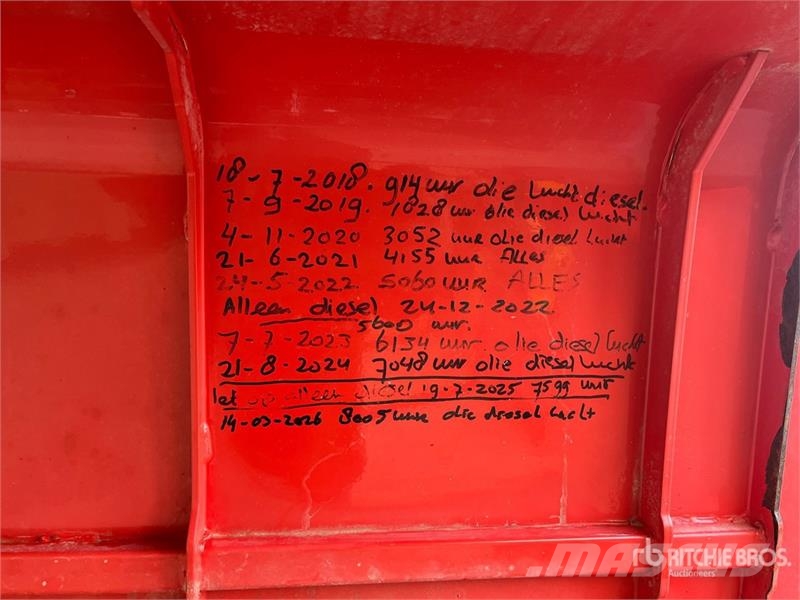 18-7-2018. 914 uur olie lucht diesel.
7-9-2019. 1828 uur olie diesel lucht
4-11-2020 3052 uur olie diesel lucht
21-6-2021 4155 uur Alles
24-5-2022 5060 uur ALLES
Alleen diesel 24-12-2022
5600 uur.
7-7-2023 6134 uur. olie diesel lucht
21-8-2024 7048 uur olie diesel lucht
let op alleen diesel 19-7-2025 7599 uur
14-03-2026 8005 uur olie diesel lucht
MASCUS
RITCHIE BROS.
Auctioneers